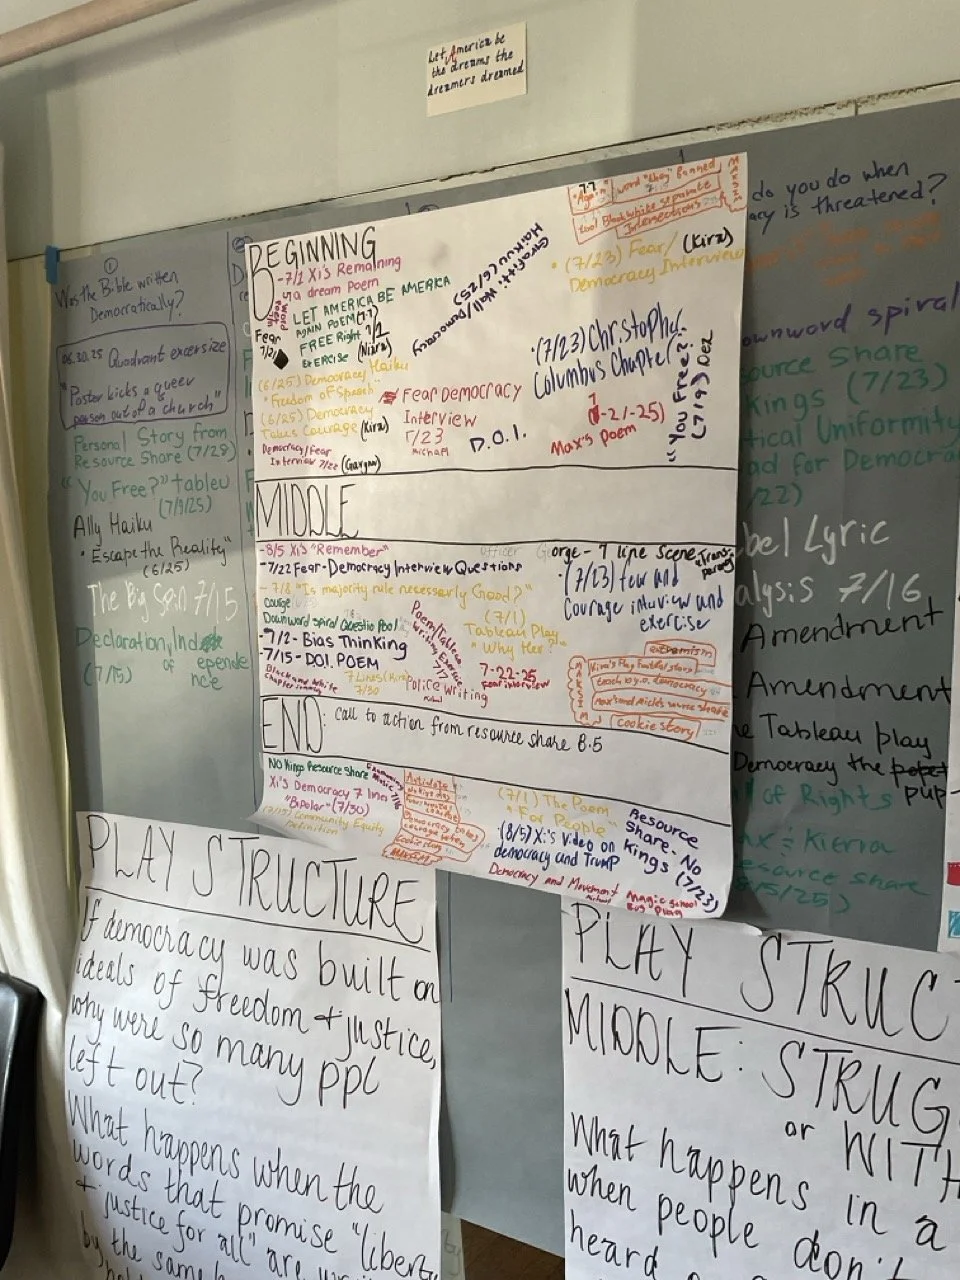 Let America be
the dreams the
dreamers dreamed
①
Was the Bible written
Democratically?
06.30.25 Quadrant excersize
"Pastor kicks a queer
person out of a church"
Personal Story from
Resource Share (7/29)
"You Free?" tableu
(7/9/25)
Ally Haiku
"Escape the Reality"
(6/25)
The Big Spin 7/15
Declaration, Inde
of ependence
(7/15)
BEGINNING
-7/1 Xi's Remaining
a dream poem
LET AMERICA BE AMERICA
AGAIN POEM (7-7)
FREE Right 7/2
EXERCISE (Nizra)
Fear
7/21
(6/25) Democracy Haiku
"Freedom of Speech"
(6/25) Democracy
Takes Courage (Kira)
Democracy/Fear
Interview 7/22
Fear Democracy
Interview
7/23
Michael
D.O.I.
Graffiti Wall/Democracy
Haiku (6/25)
word "Negro" Banned
tool Black White separate
Intersections
• (7/23) Fear/ (Kira)
Democracy Interview
• (7/23) Christopher
Columbus Chapter
7
(-21-25)
Max's poem
"You Free?"
(7/9) Dez
MIDDLE
-8/5 Xi's "Remember"
-7/22 Fear-Democracy Interview Questions
-7/8 "Is majority rule necessarily Good?"
Downward spiral Question Pool
-7/2- Bias Thinking
-7/15- D.O.I. POEM
Black and White
7 Lines (Kira)
7/30
Poem/Tableau
Writing Exercise
7/7
Police Writing
(7/1)
Tableau Play
"Why Her?"
7-22-25
Fear interview
Officer George - 7 line scene
• (7/23) fear and
Courage interview and
exercise
Extremism
cookie story
END: Call to action from resource share 8.5
NO Kings Resource Share
Xi's Democracy 7 line
"Bipolar" (7/30)
(7/15) Community Equity
Definition
(7/1) The Poem
"For People"
• (8/5) Xi's Video on
democracy and Trump
Democracy and Movement
Resource
Share - No
Kings (7/23)
Magic School
Bus Play
do you do when
acy is threatened?
ownword spiral
source Share
Kings (7/23)
tical Uniformity
ad for Democra
/22)
bel Lyric
alysis 7/16
Amendment
Amendment
e Tableau play
Democracy the
pup
l of Rights
ax & Kierra
esource share
8/5/25)
PLAY STRUCTURE
If democracy was built on
ideals of freedom + justice,
why were so many ppl
left out?
What happens when the
words that promise "liberty
+ justice for all" are
by the same
PLAY STRUC
MIDDLE: STRUG
or WITH
What happens in a
when people don't
heard